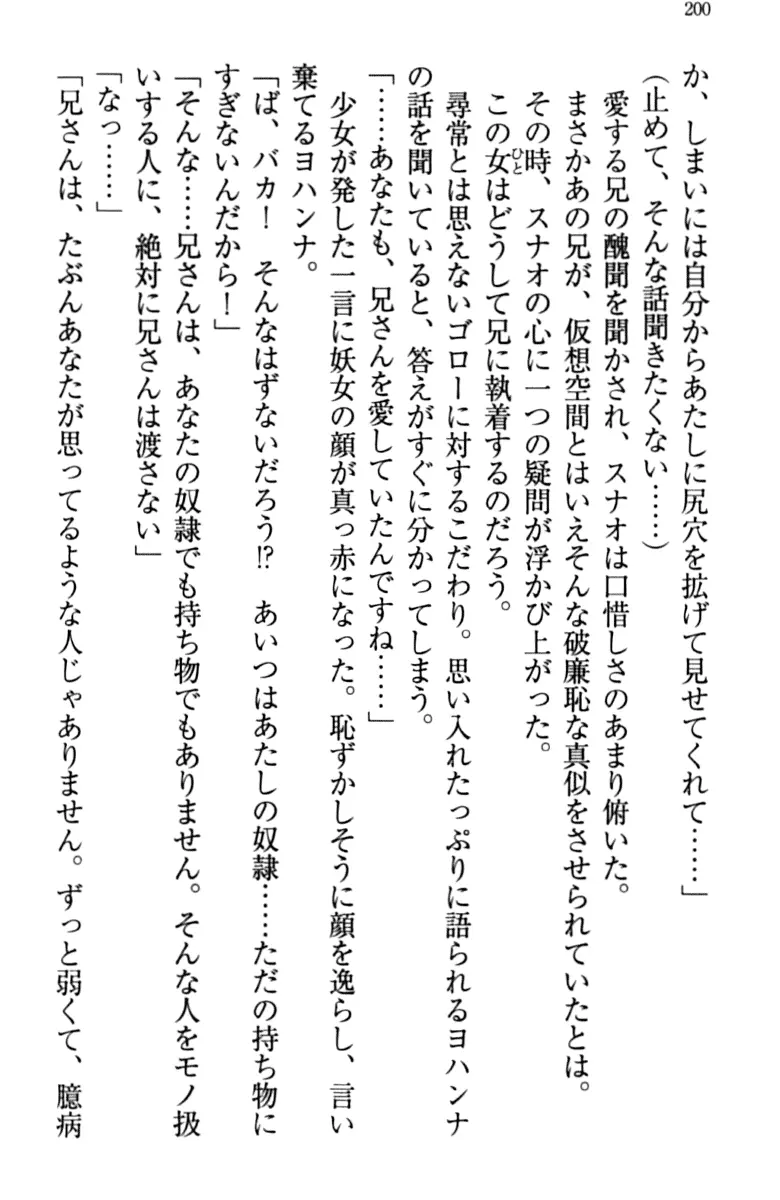 200
か、しまいには自分からあたしに尻穴を拡げて見せてくれて……」
(止めて、そんな話聞きたくない……)
　愛する兄の醜聞を聞かされ、スナオは口惜しさのあまり俯いた。
　まさかあの兄が、仮想空間とはいえそんな破廉恥な真似をさせられていたとは。
　その時、スナオの心に一つの疑問が浮かび上がった。
　この女ひとはどうして兄に執着するのだろう。
　尋常とは思えないゴローに対するこだわり。思い入れたっぷりに語られるヨハンナ
の話を聞いていると、答えがすぐに分かってしまう。
「……あなたも、兄さんを愛していたんですね……」
　少女が発した一言に妖女の顔が真っ赤になった。恥ずかしそうに顔を逸らし、言い
棄てるヨハンナ。
「ば、バカ！　そんなはずないだろう!?　あいつはあたしの奴隷……ただの持ち物に
すぎないんだから！」
「そんな……兄さんは、あなたの奴隷でも持ち物でもありません。そんな人をモノ扱
いする人に、絶対に兄さんは渡さない」
「なっ……」
「兄さんは、たぶんあなたが思ってるような人じゃありません。ずっと弱くて、臆病